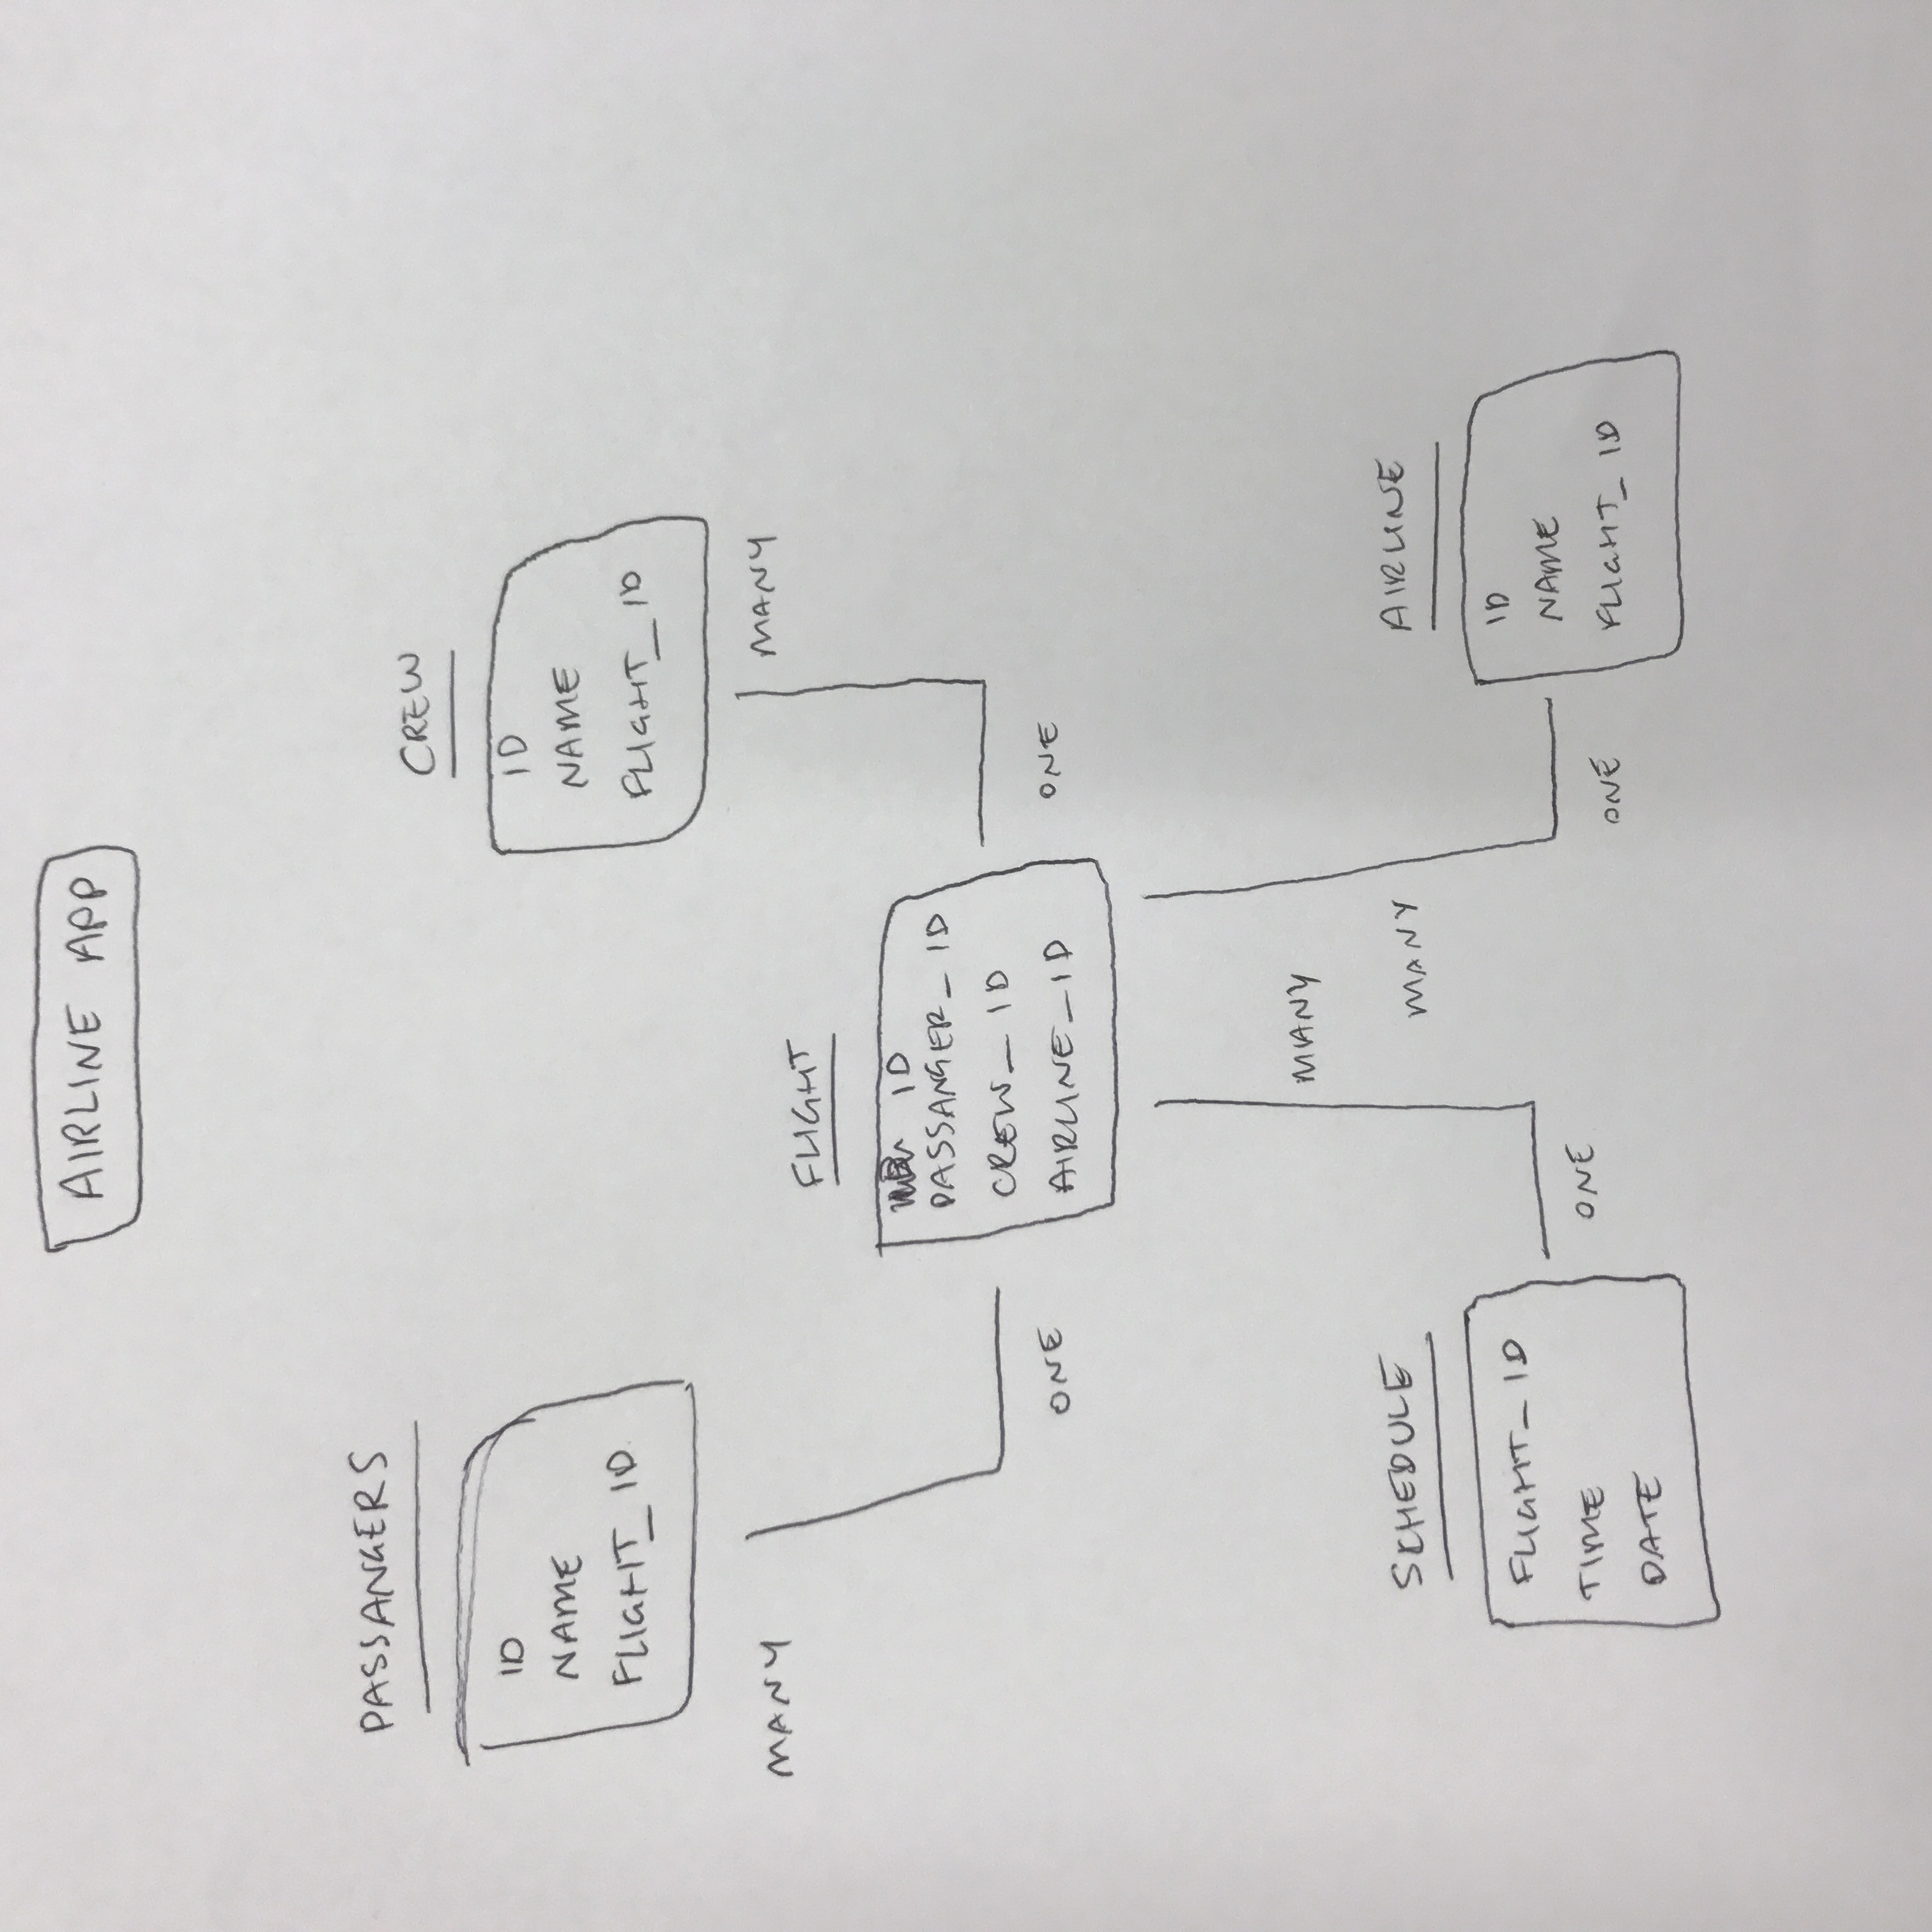 AIRLINE APP
PASSANGERS
ID
NAME
FLIGHT_ID
MANY
ONE
CREW
ID
NAME
FLIGHT_ID
MANY
ONE
FLIGHT
ID
PASSANGER_ID
CREW_ID
AIRLINE_ID
MANY
MANY
SCHEDULE
FLIGHT_ID
TIME
DATE
ONE
AIRLINE
ID
NAME
FLIGHT_ID
ONE